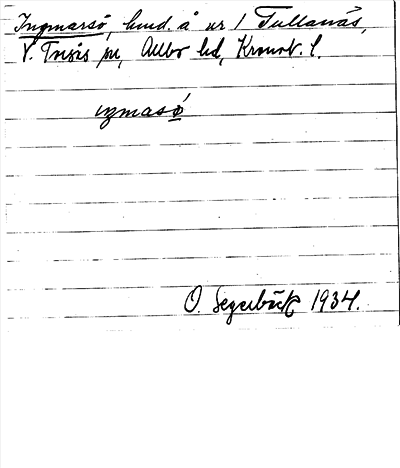 Ingmarsö, hmd. å nr 1 Tullanäs,
V. Torsås sn, Allbo hd, Kronob. l.
ıŋmasö̀
O. Segerbäck 1934.